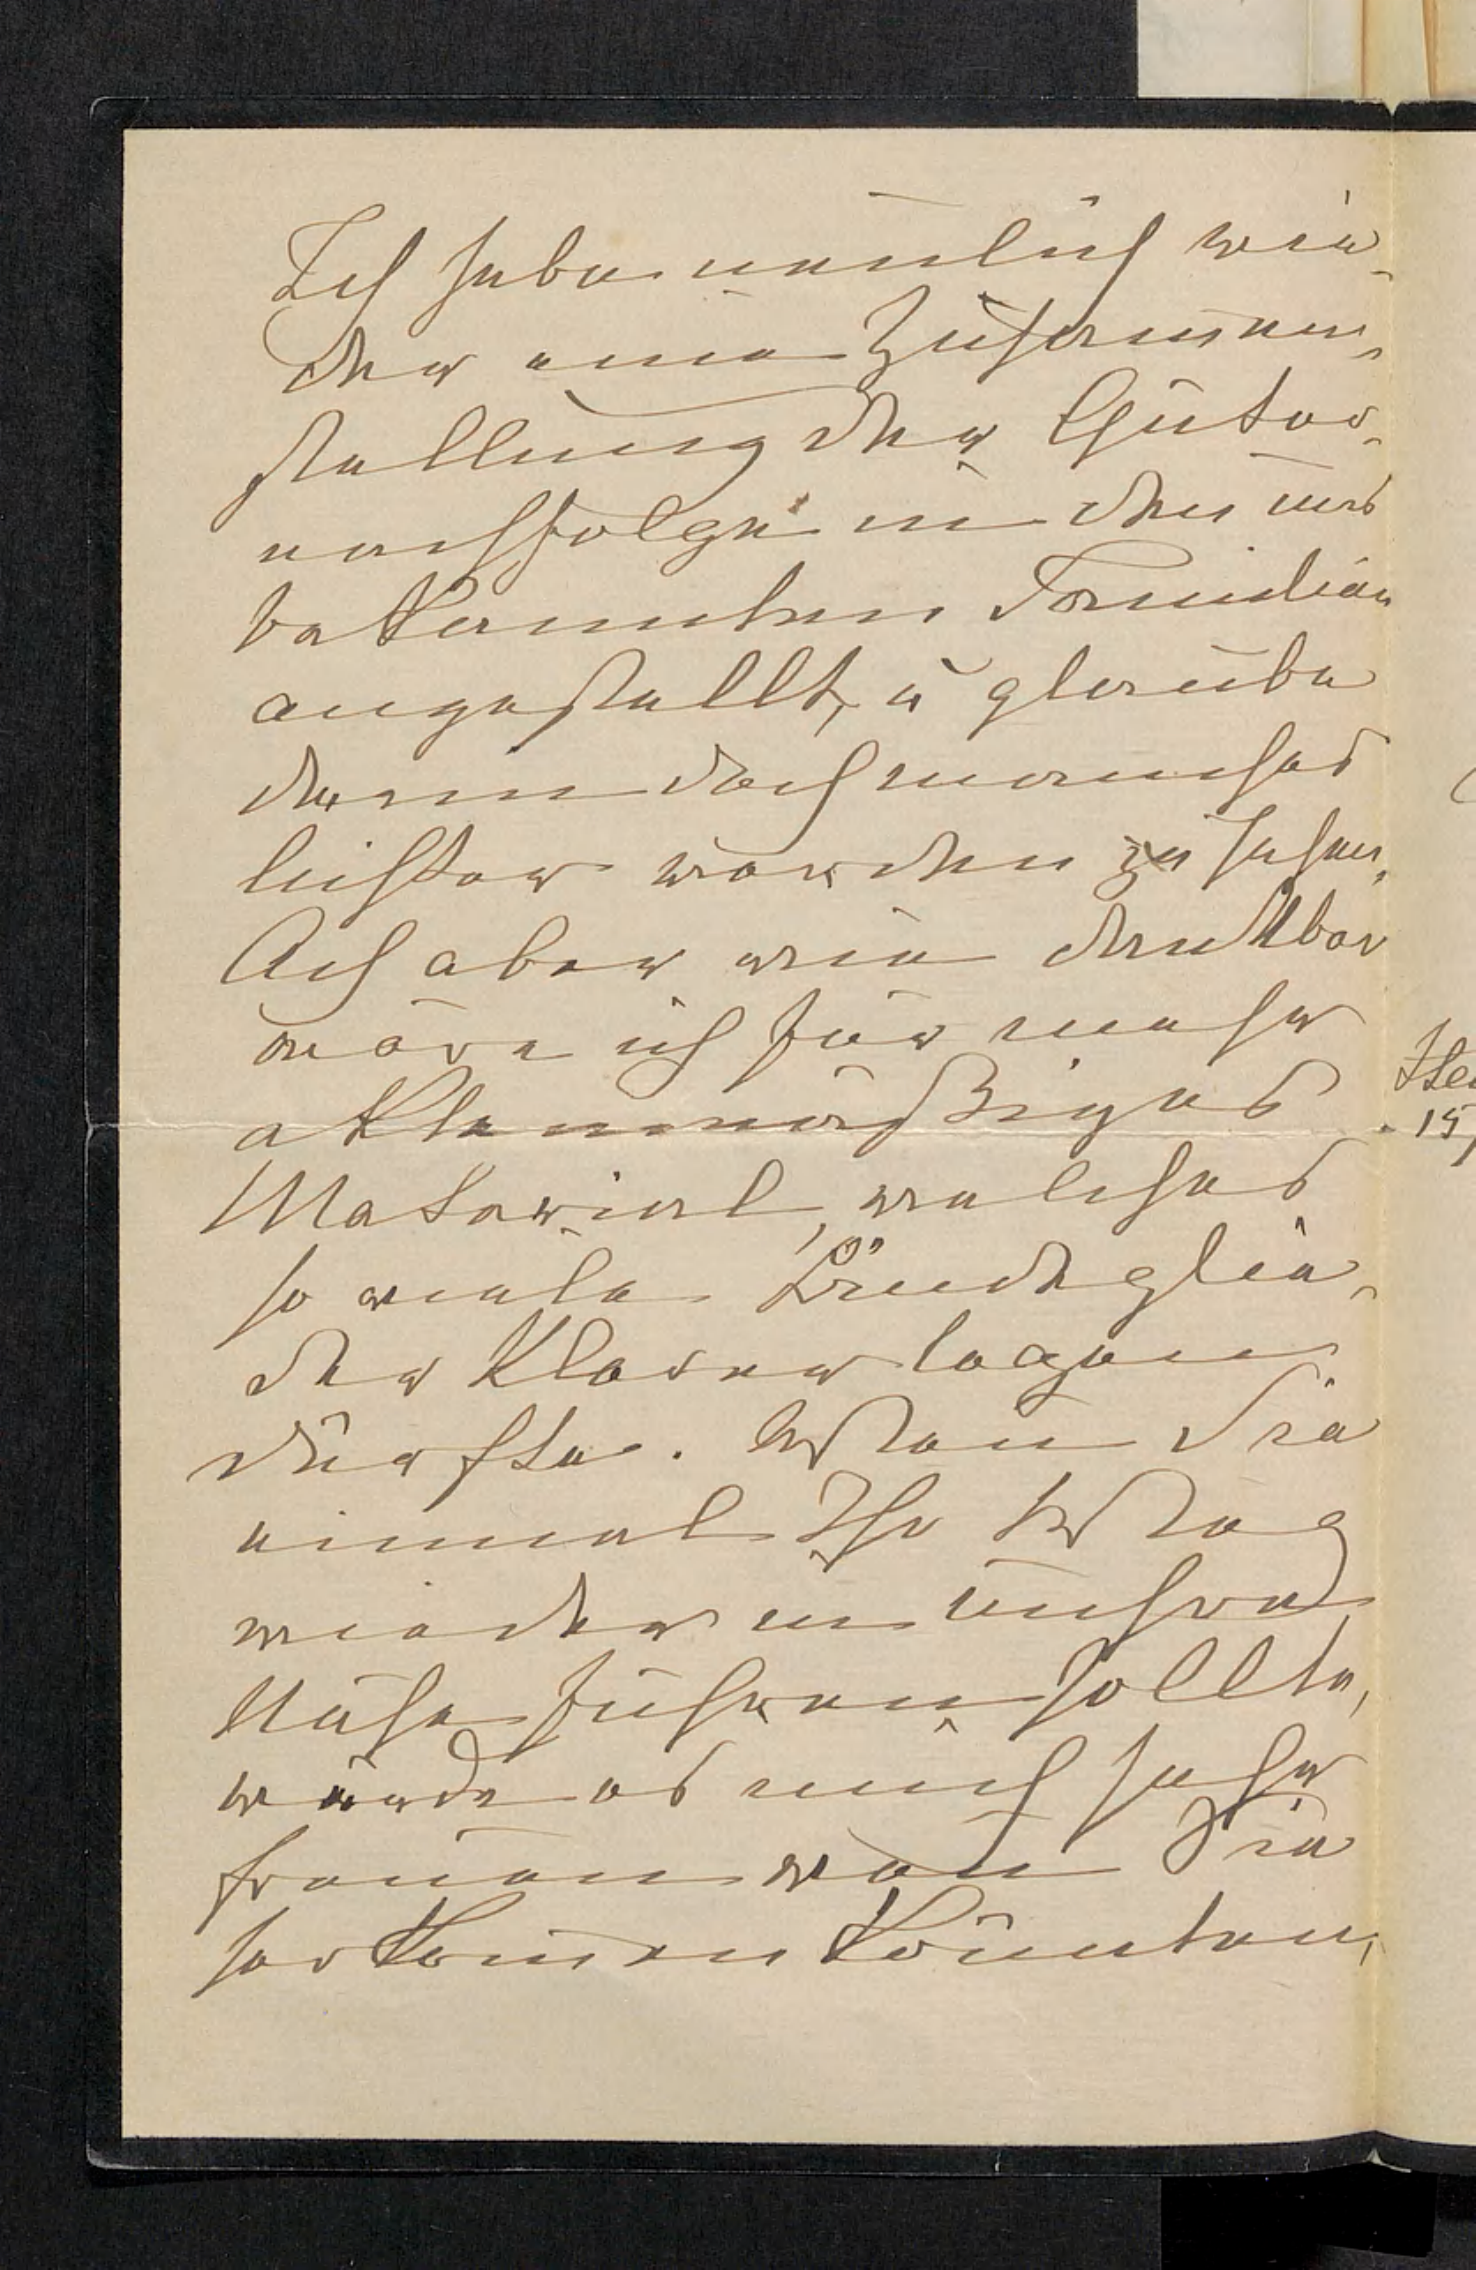 Ich habe nemlich wie-
der eine Zusam̅en-
stellung der Güter-
nachfolge in den uns
bekannten Familien
angestellt, u glaube
darin doch manches
lichter werden zu sehen.
Ach aber wie dankbar
wäre ich für mehr
aktenmäßiges
Material, welches
so viele Bindeglie-
der klarer legen
dürfte. Wen̅ Sie
einmal Ihr Weg
wieder in unsre
Nähe führen sollte,
würde es mich sehr
freuen wen̅ Sie
herkom̅en könnten,
15